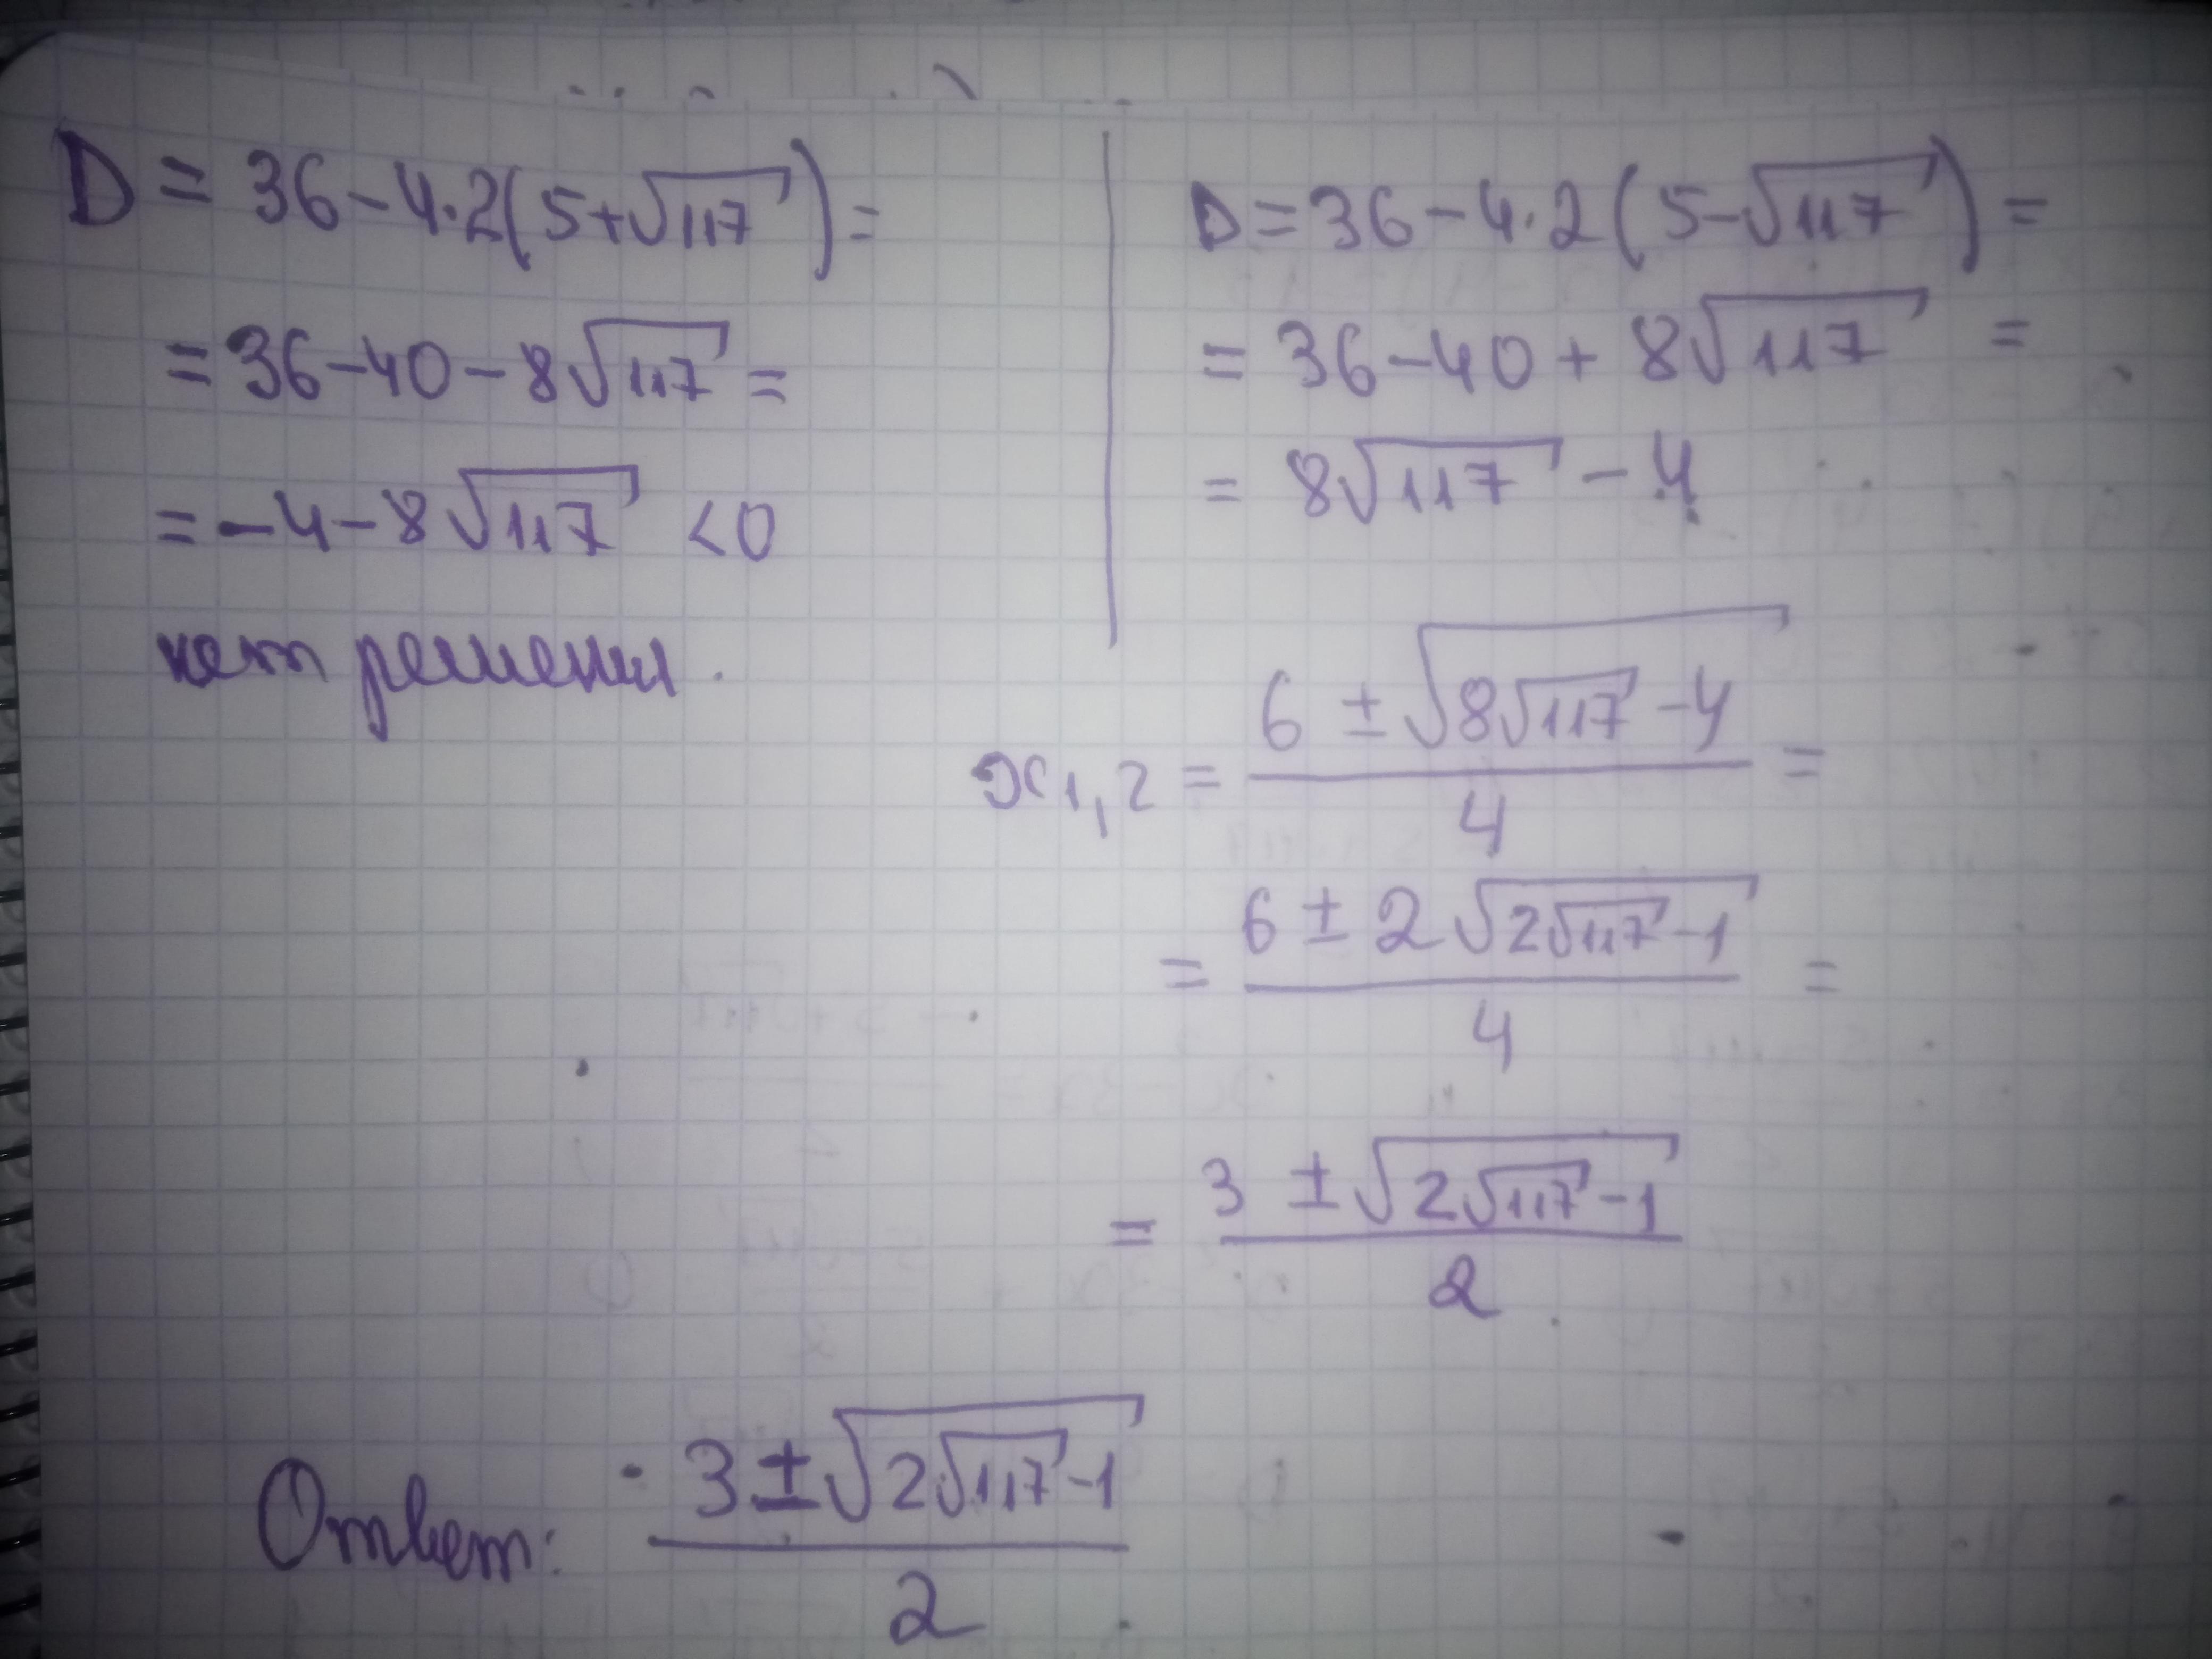 D = 36 - 4·2(5+√117) =
= 36-40-8√117 =
= -4-8√117 <0
нет решения.
D = 36-4·2(5-√117) =
= 36-40+8√117 =
= 8√117 - 4
x1,2 = (6 ± √(8√117 - 4))/4 =
= (6 ± 2√(2√117 - 1))/4 =
= (3 ± √(2√117 - 1))/2
Ответ: (3 ± √(2√117 - 1))/2